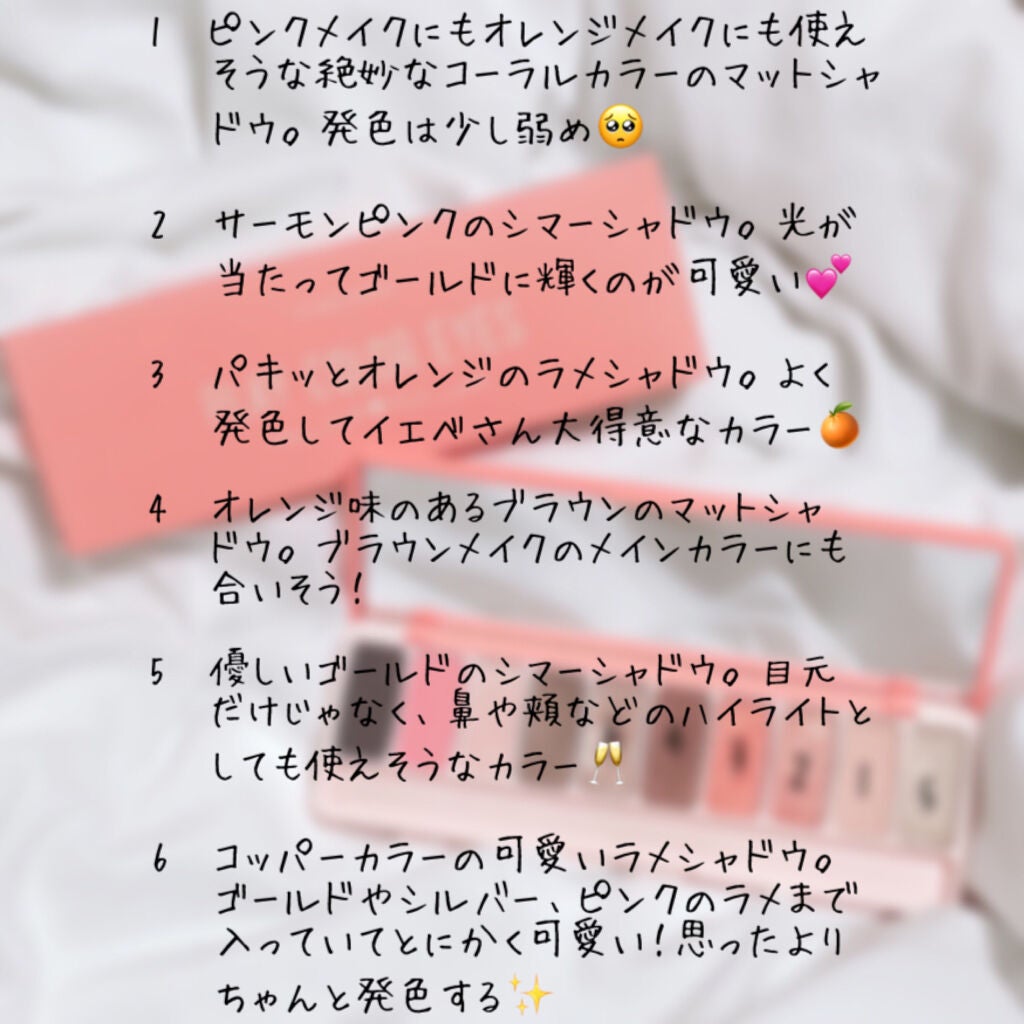 1 ピンクメイクにもオレンジメイクにも使え
そうな絶妙なコーラルカラーのマットシャ
ドウ。発色は少し弱め🥺
2 サーモンピンクのシマーシャドウ。光が
当たってゴールドに輝くのが可愛い💕
3 パキッとオレンジのラメシャドウ。よく
発色してイエベさん大得意なカラー🍊
4 オレンジ味のあるブラウンのマットシャ
ドウ。ブラウンメイクのメインカラーにも
合いそう！
5 優しいゴールドのシマーシャドウ。目元
だけじゃなく、鼻や頬などのハイライトと
しても使えそうなカラー🥂
6 コッパーカラーの可愛いラメシャドウ。
ゴールドやシルバー、ピンクのラメまで
入っていてとにかく可愛い！思ったより
ちゃんと発色する✨